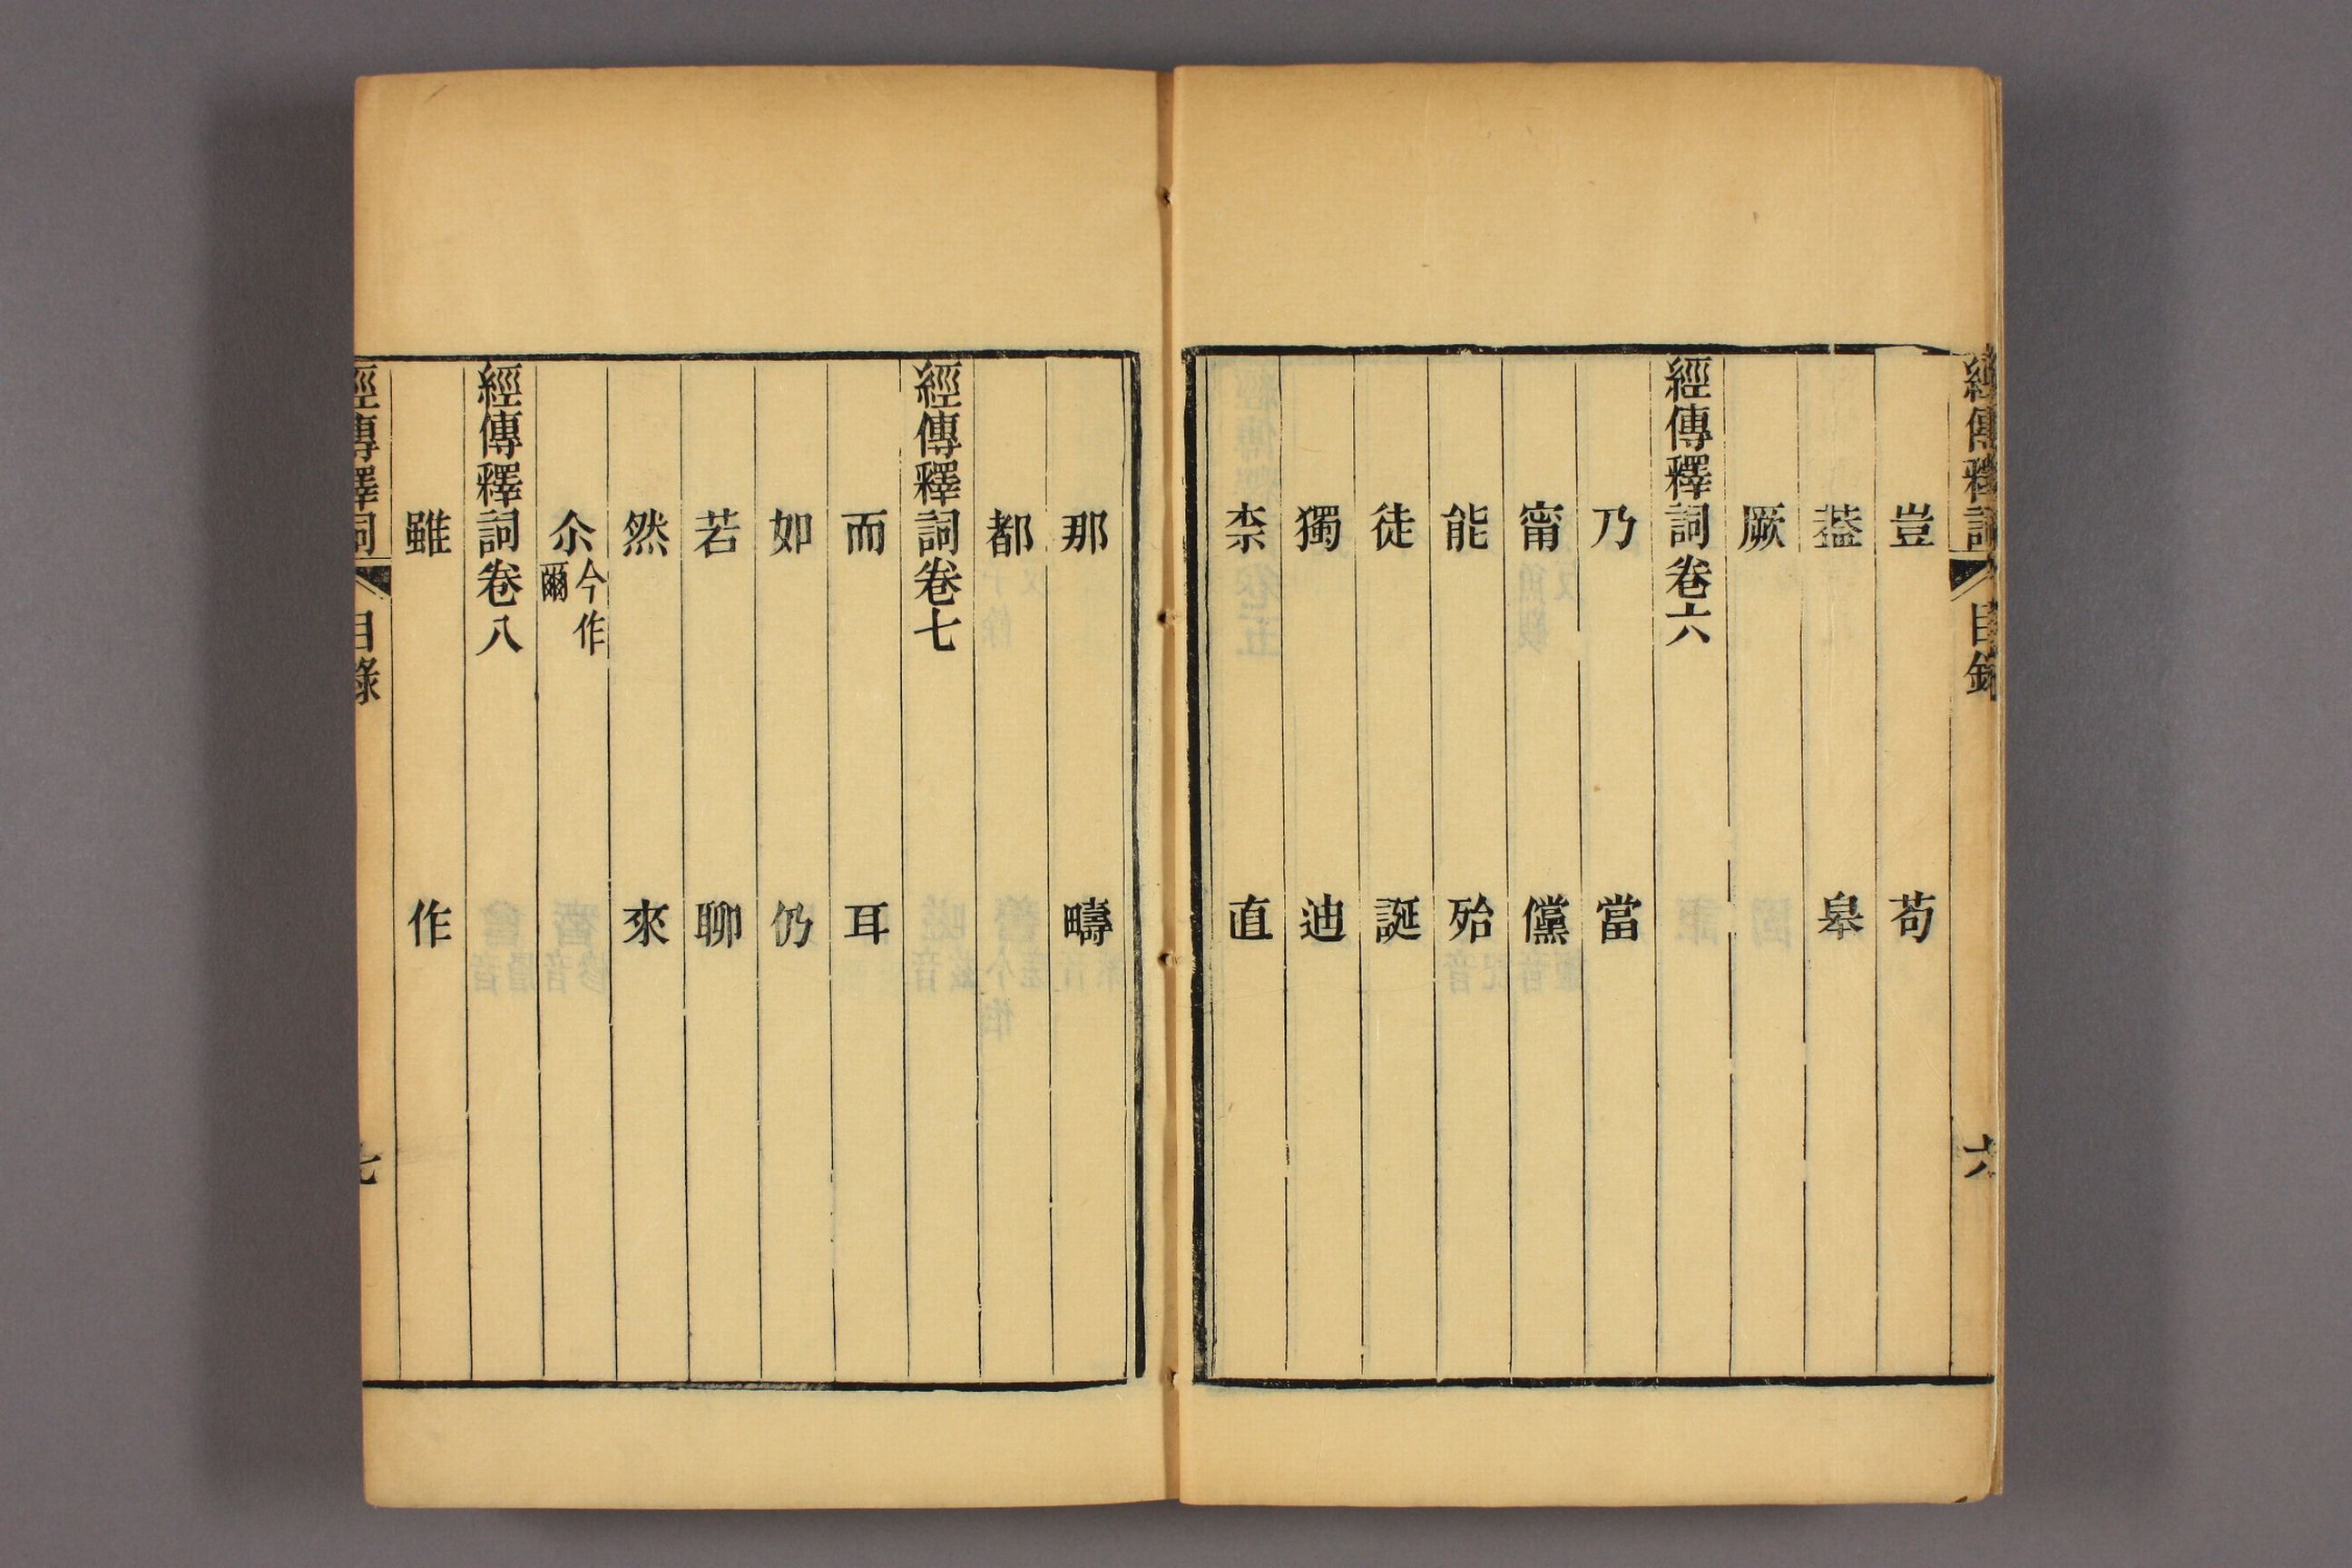 經傳釋詞 目錄 六
豈 苟
葢 皋
厥
經傳釋詞卷六
乃 當
甯 儻
能 殆
徒 誕
獨 迪
柰 直
那 疇
都
經傳釋詞卷七
而 耳
如 仍
若 聊
然 來
尒今作爾
經傳釋詞卷八
雖 作
經傳釋詞 目錄 七